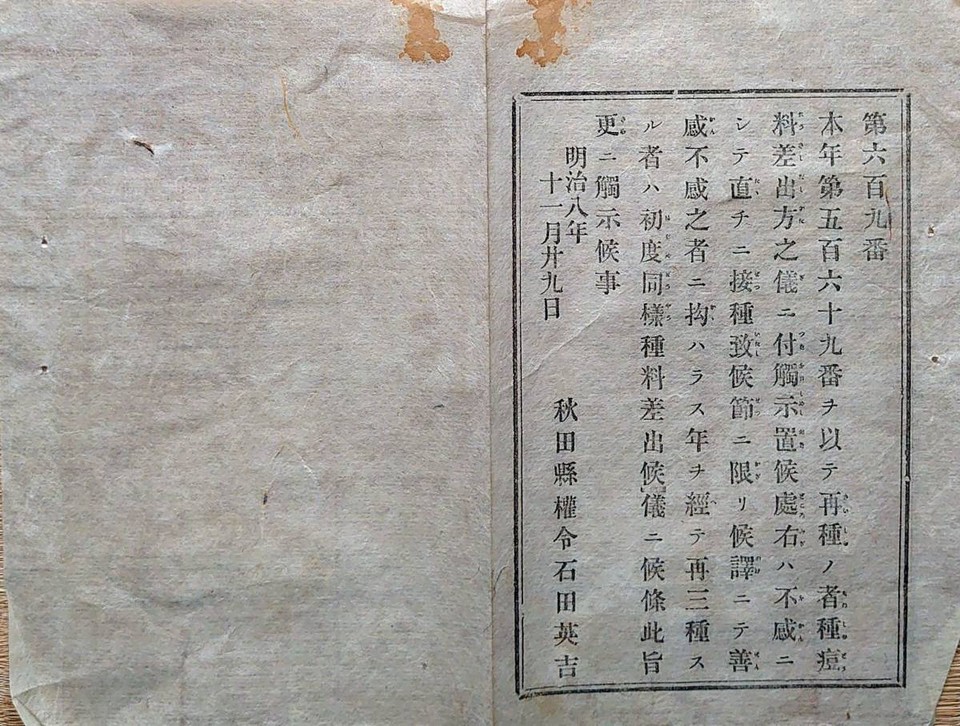 第六百九番
本年第五百六十九番ヲ以テ再種ノ者種痘
料差出方之儀ニ付觸示置候處右ハ不感ニ
シテ直チニ接種致候節ニ限リ候譯ニテ善
感不感之者ニ拘ハラス年ヲ經テ再三種ス
ル者ハ初度同樣種料差出候儀ニ候條此旨
更ニ觸示候事
明治八年
十一月廿九日
秋田縣權令石田英吉